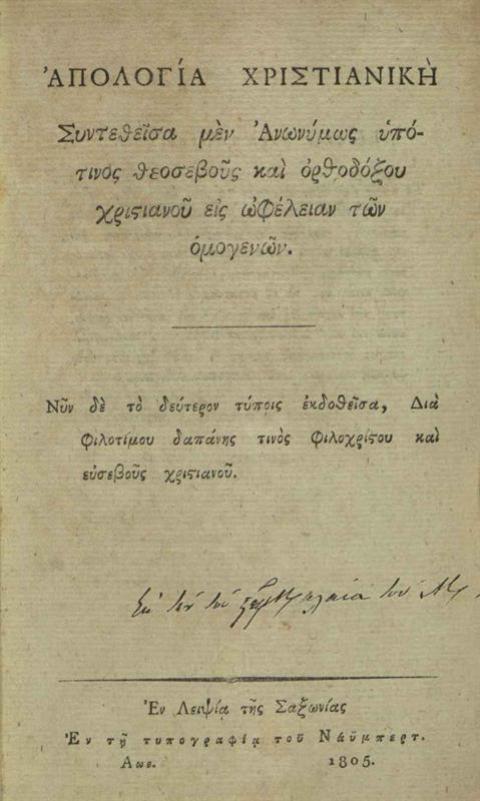 ἈΠΟΛΟΓΊΑ ΧΡΙΣΤΙΑΝΙΚῊ
Συντεθεῖσα μὲν Ἀνωνύμως ὑπό-
τινος θεοσεβοῦς καὶ ὀρθοδόξου
χριϛιανοῦ εἰς ὠφέλειαν τῶν
ὁμογενῶν.
Νῦν δὲ τὸ δεύτερον τύποις ἐκδοθεῖσα, Διὰ
φιλοτίμου δαπάνης τινὸς φιλοχρίϛου καὶ
εὐσεβοῦς χριϛιανοῦ.
Ἐν Λειψίᾳ τῆς Σαξωνίας
Ἐν τῇ τυπογραφίᾳ τοῦ Νάϋμπερτ.
Αωε. 1805.